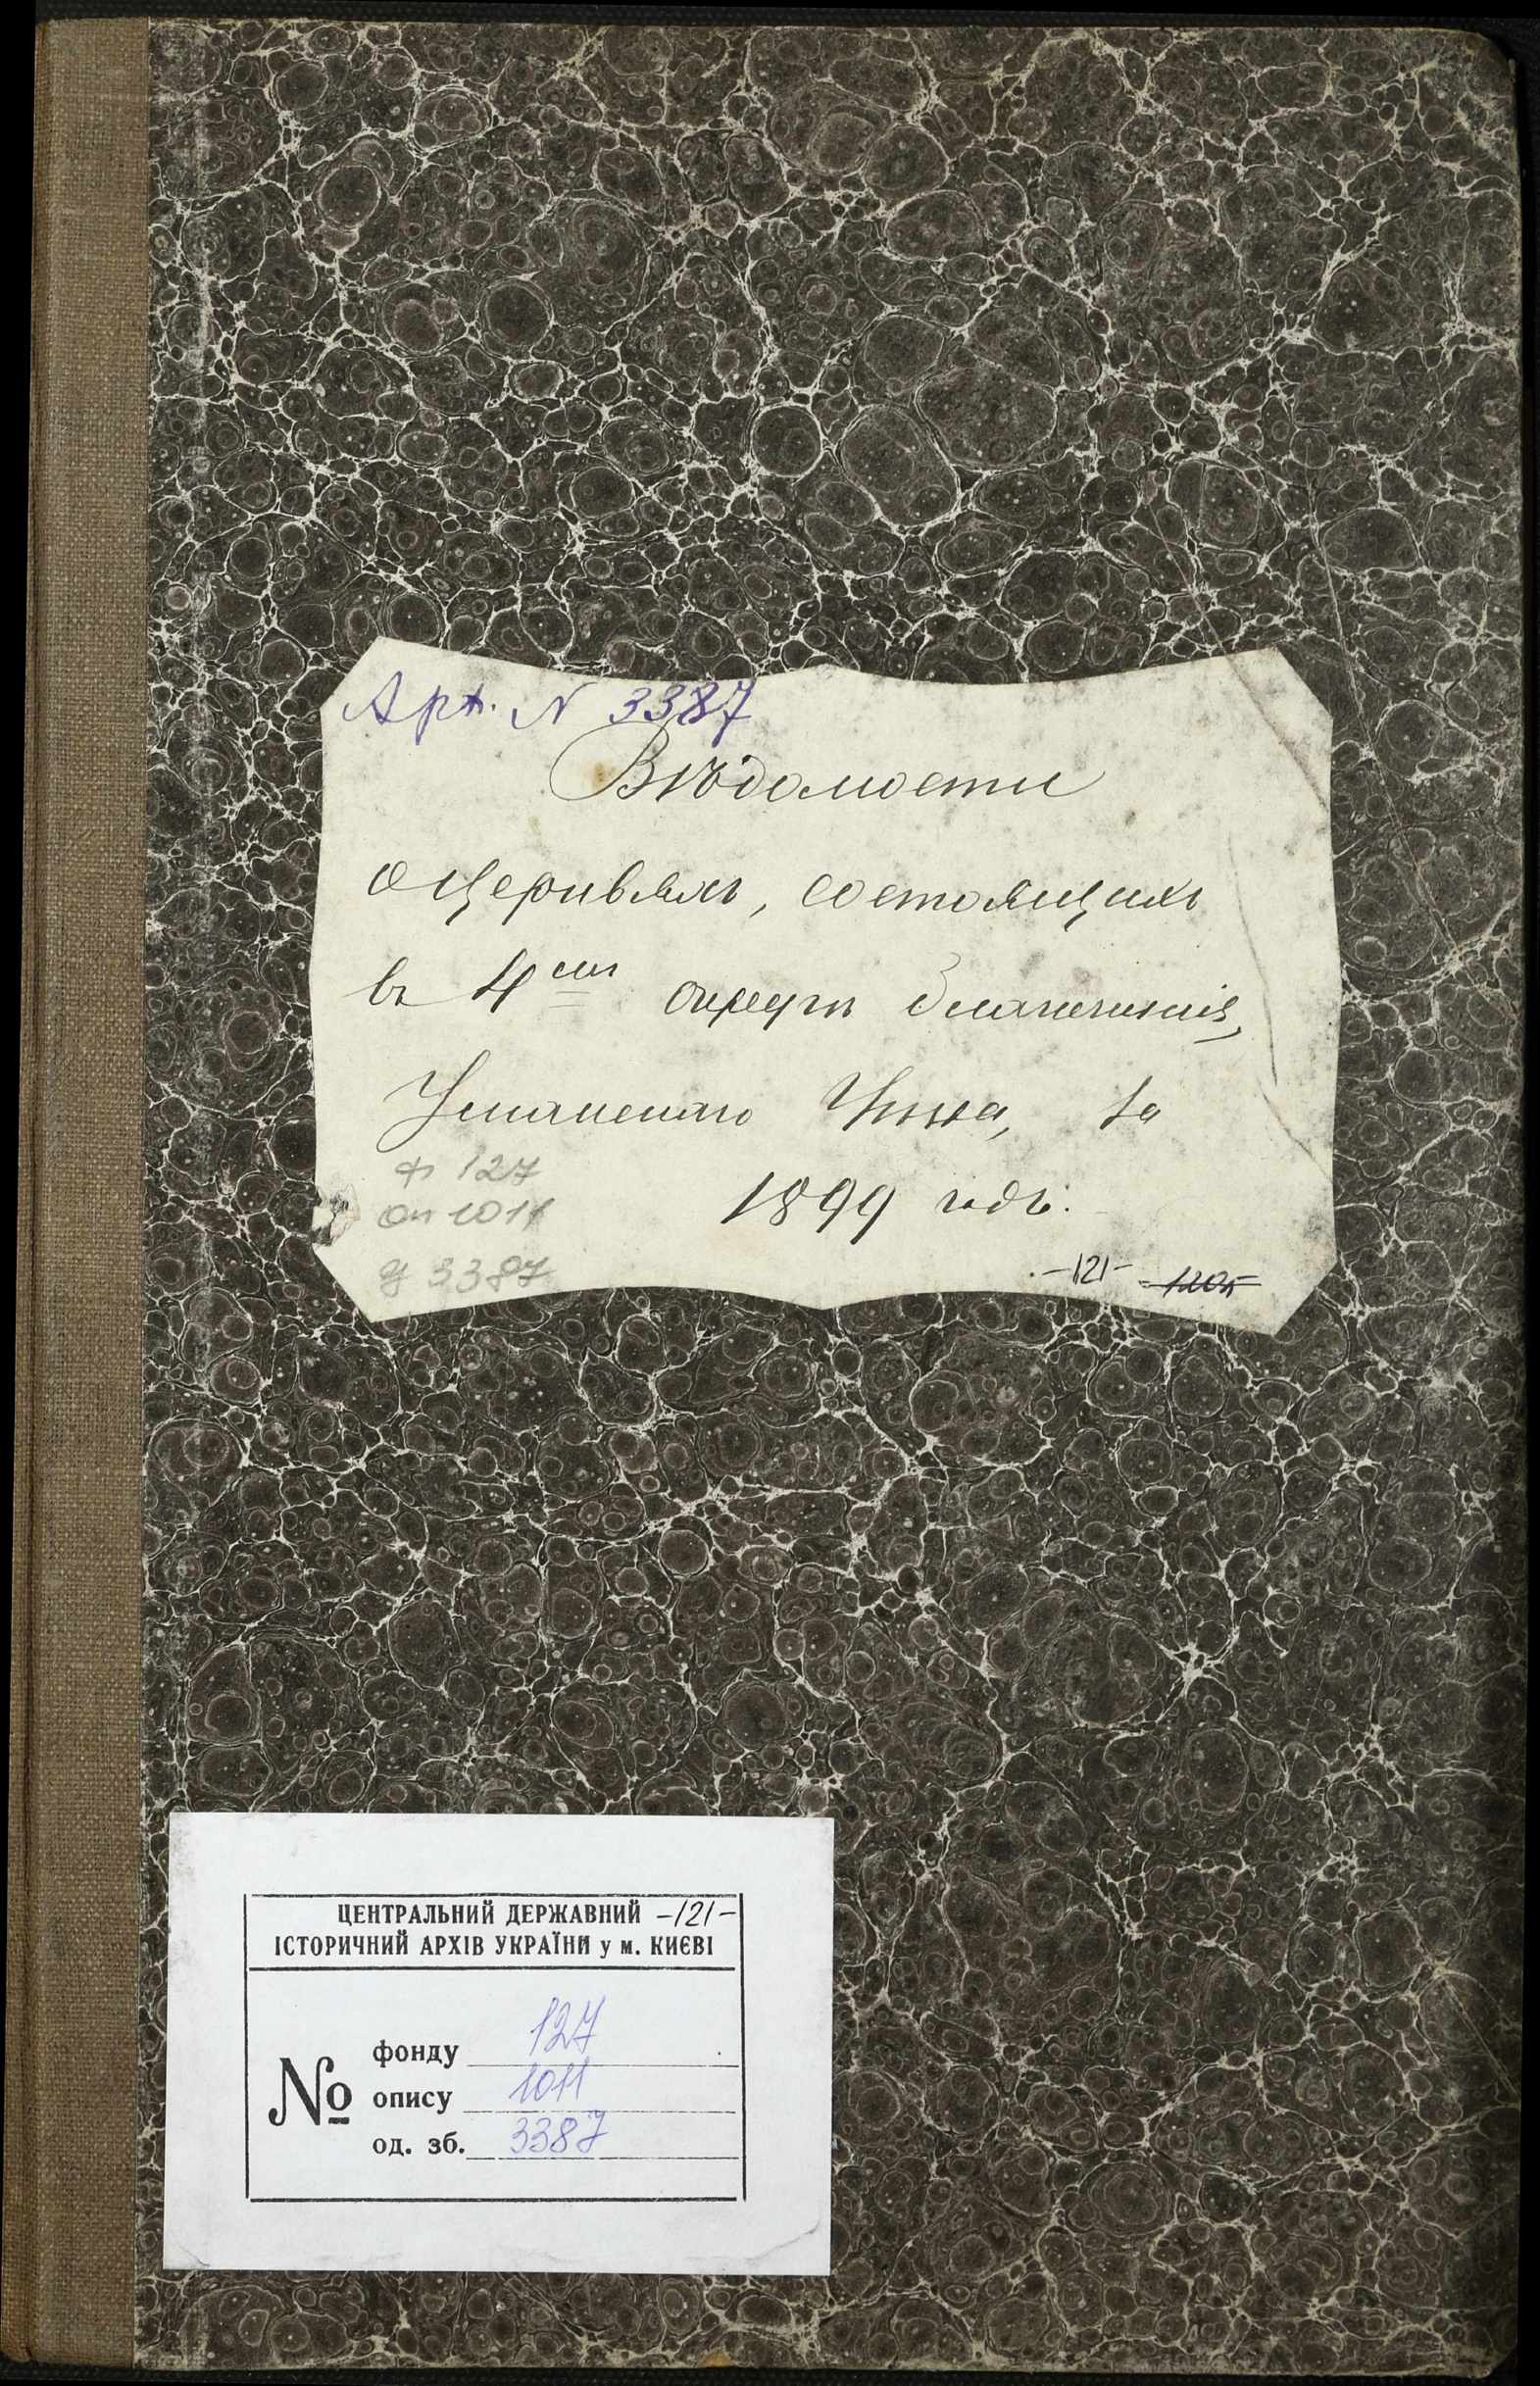 Арх. N 3387
Вѣдомости
о Церквахъ, состоящихъ
въ 4мъ округѣ благочинія,
Уманскаго Уѣзда, за
1899 годъ.
ф 127
оп 1011
д 3387
-121-
ЦЕНТРАЛЬНИЙ ДЕРЖАВНИЙ -121-
ІСТОРИЧНИЙ АРХІВ УКРАЇНИ у м. КИЄВІ
№
фонду 127
опису 1011
од. зб. 3387